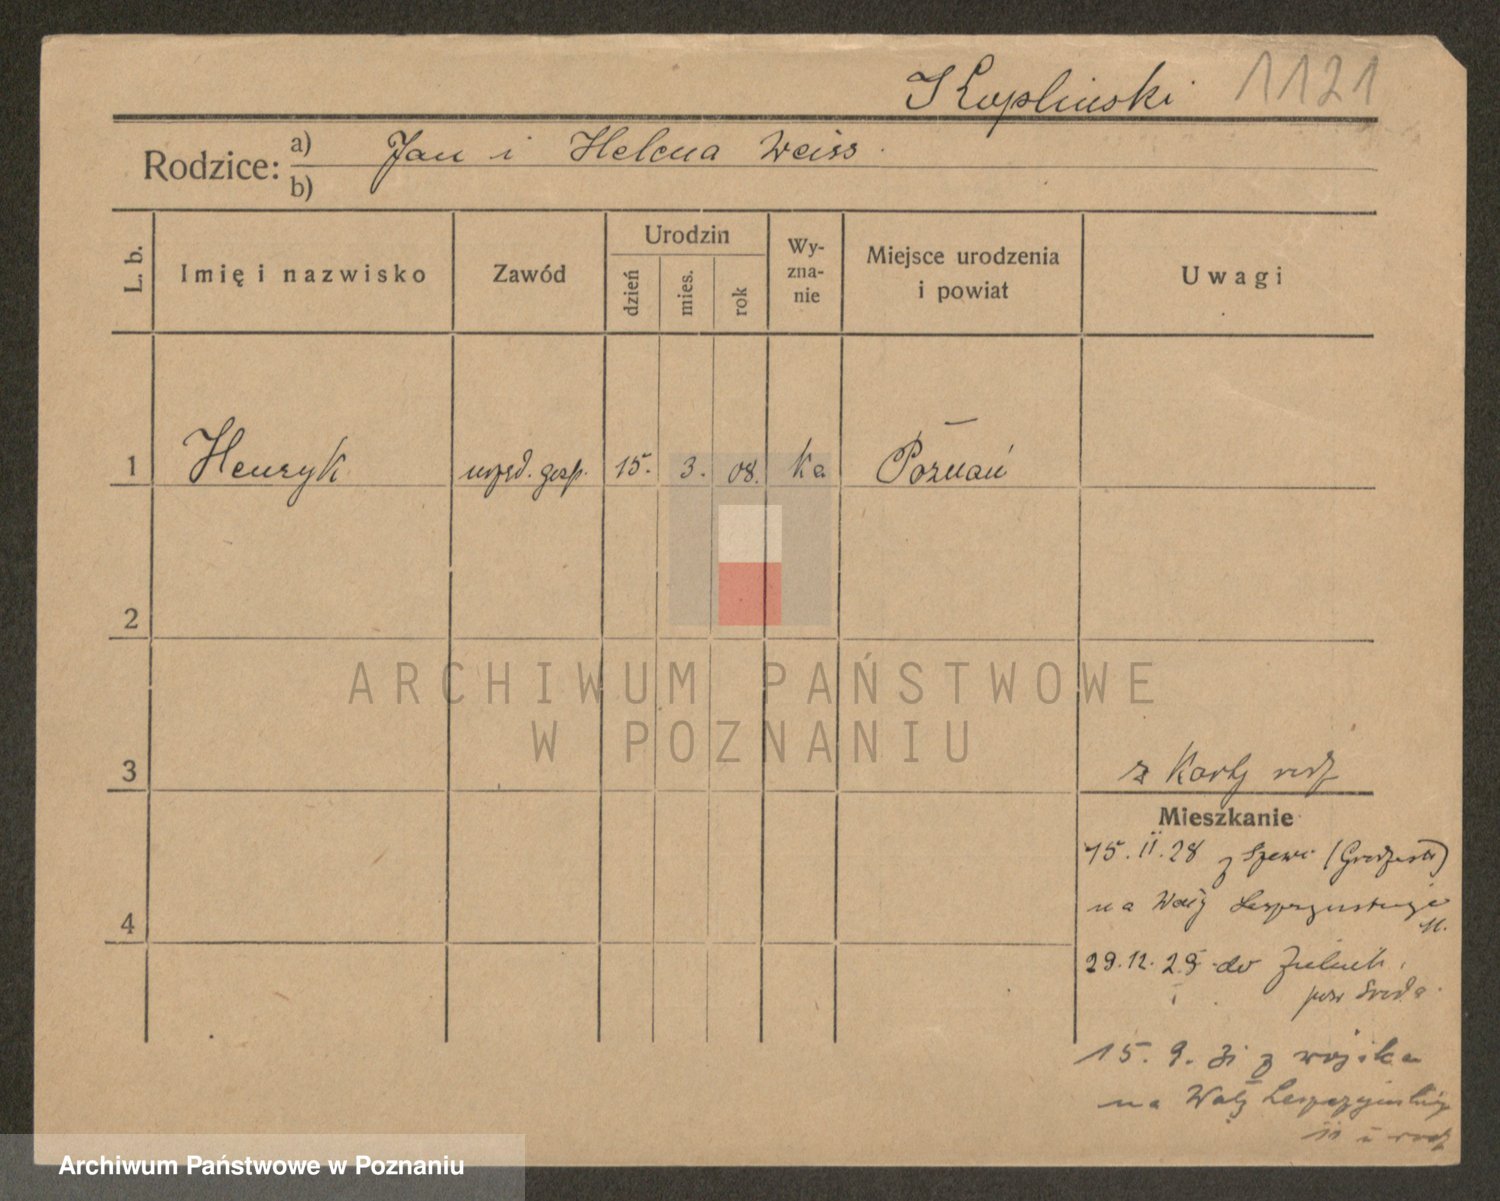 Kopliński 1121
Rodzice: a) Jan i Helena Weiss
b)
L. b.
Imię i nazwisko
Zawód
Urodzin
dzień
mies.
rok
Wy-
zna-
nie
Miejsce urodzenia
i powiat
Uwagi
1 Henryk urzęd. gosp. 15. 3. 08. ka Poznań
2
ARCHIWUM PAŃSTWOWE
W POZNANIU
3
z karty rodz
Mieszkanie
15. II. 28 z
na Wały
11.
4
29.12.29 do
pow Środa
15. 9. 31 z wojska
na Wały Leszczyńskiego
11 u rodz
Archiwum Państwowe w Poznaniu